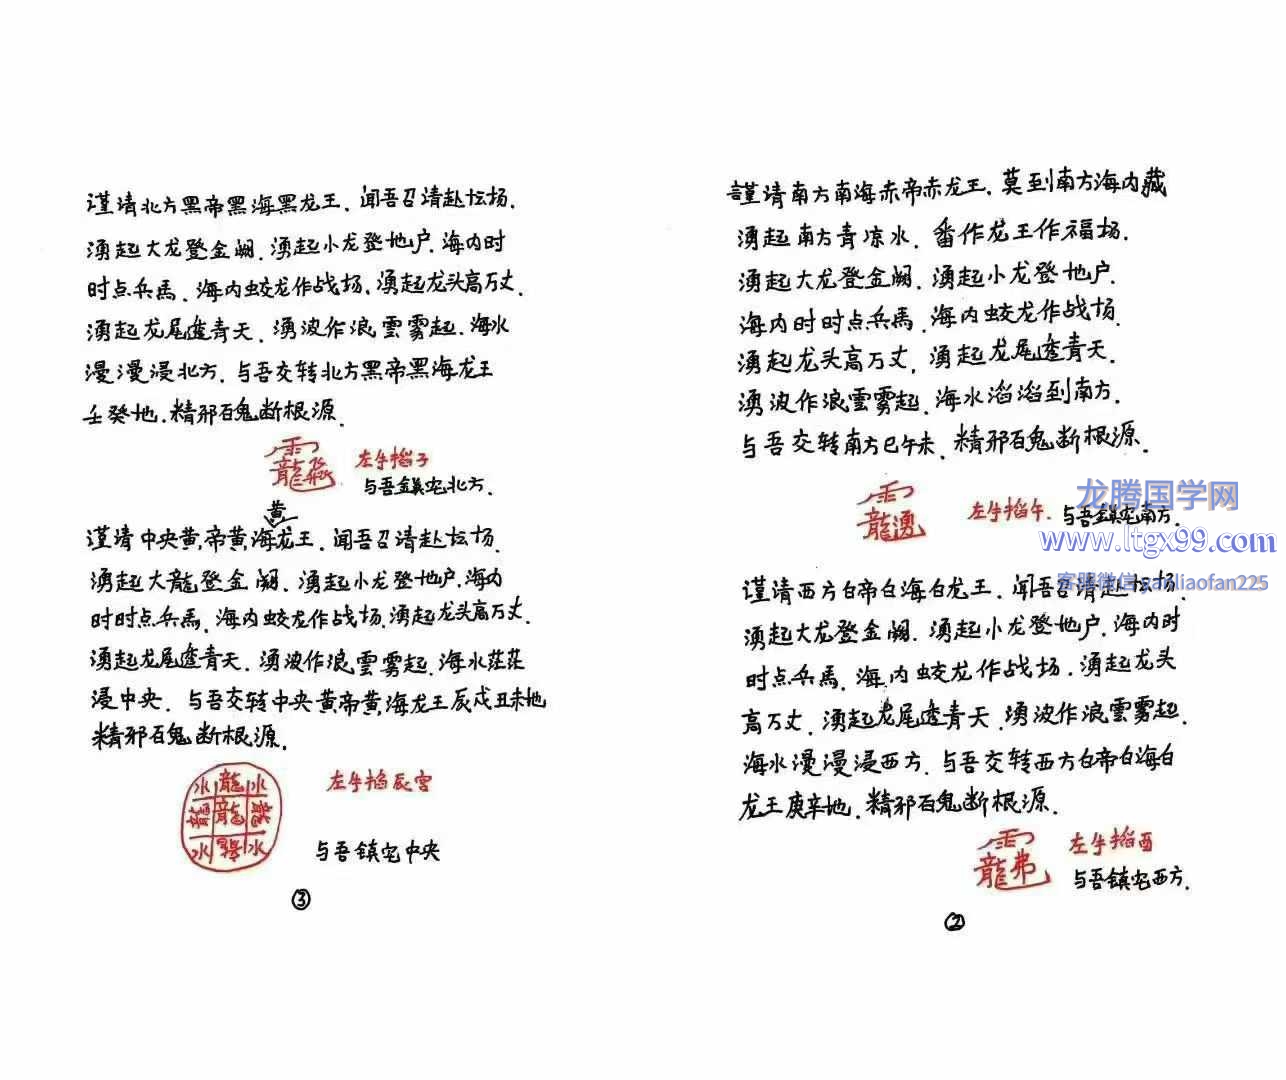 謹请南方南海赤帝赤龙王.莫至到南方海内藏
湧起南方青凉水.番作龙王作福场.
湧起大龙登金阙.湧起小龙登地户.
海内时时点兵馬.海内蛟龙作战场.
湧起龙头高万丈.湧起龙尾透青天.
湧波作浪雲雾起.海水滔滔到南方.
与吾交转南方巳午未.精邪百鬼断根源.
左手掐午.与吾鎮宅南方.
谨请西方白帝白海白龙王.闻吾召请赴坛场.
湧起大龙登金阙.湧起小龙登地户.海内时
时点兵馬.海内蛟龙作战场.湧起龙头
高万丈.湧起龙尾透青天.湧波作浪雲雾起.
海水漫漫浸西方.与吾交转西方白帝白海白
龙王庚辛地.精邪百鬼断根源.
左手掐酉
与吾镇宅西方.
②
谨请北方黑帝黑海黑龙王.闻吾召请赴坛场.
湧起大龙登金阙.湧起小龙登地户.海内时
时点兵馬.海内蛟龙作战场.湧起龙头高万丈.
湧起龙尾透青天.湧波作浪雲雾起.海水
漫漫浸北方.与吾交转北方黑帝黑海龙王
壬癸地.精邪百鬼断根源.
左手掐子
与吾鎮宅北方.
黄
谨请中央黄帝黄海龙王.闻吾召请赴坛场.
湧起大龍登金阙.湧起小龙登地户.海内
时时点兵馬.海内蛟龙作战场.湧起龙头高万丈.
湧起龙尾透青天.湧波作浪雲雾起.海水茫茫
浸中央.与吾交转中央黄帝黄海龙王辰戌丑未地
精邪百鬼断根源.
水龍水
龍龍龍
水龍水
左手掐辰宫
与吾镇宅中央
③
龙腾国学网
www.ltgx99.com
客服微信 yanliaofan225